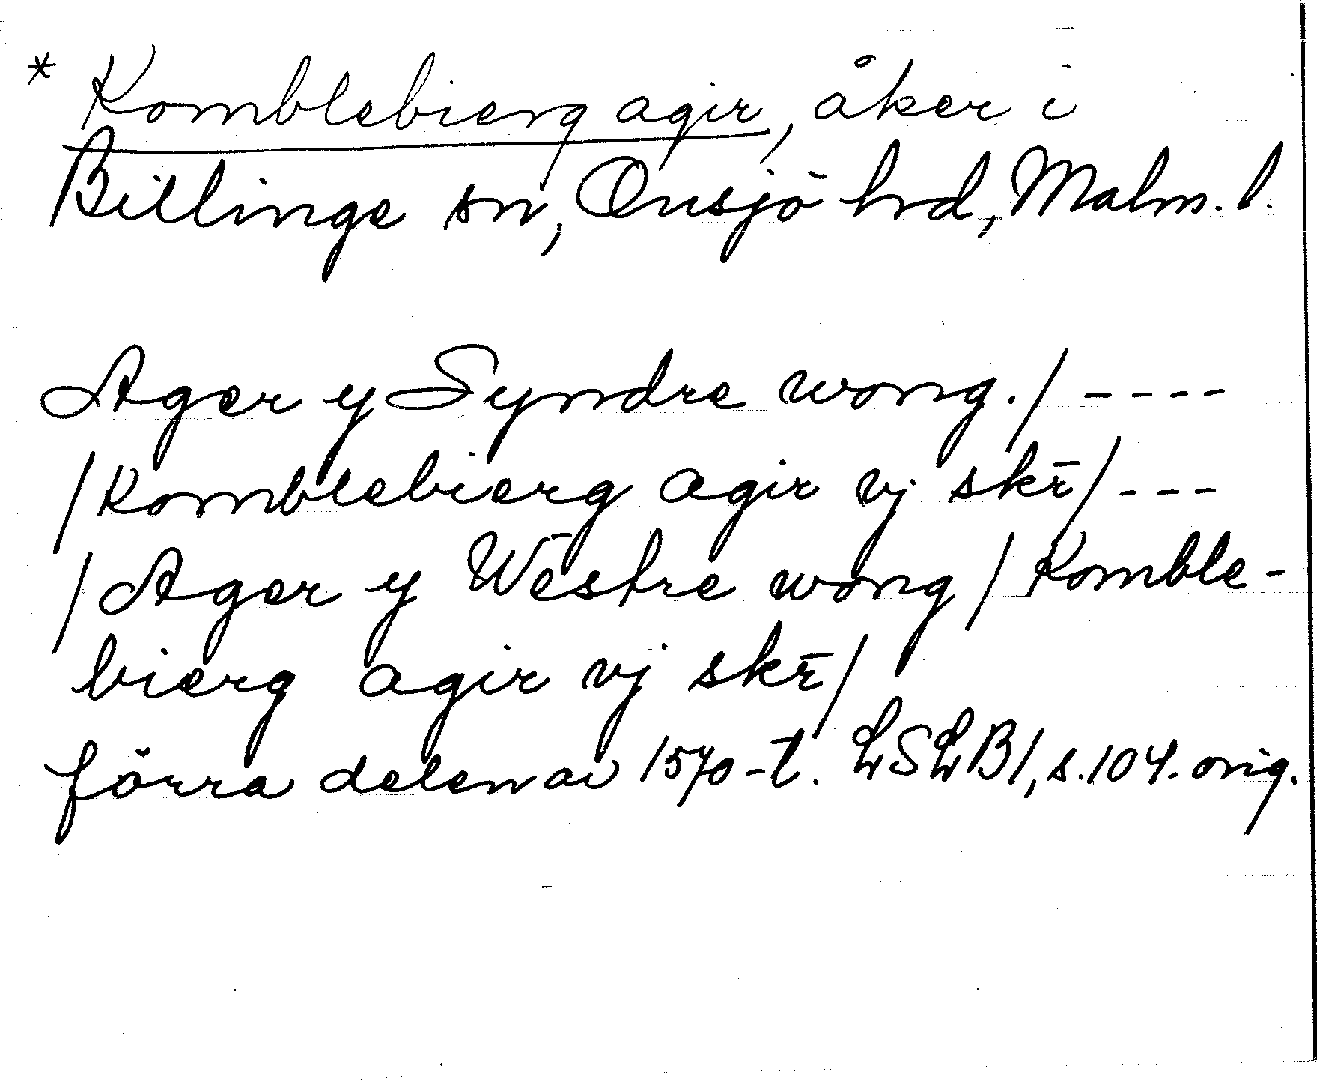 * Komblebierg agir, åker i
Billinge sn, Onsjö hrd, Malm. l.
Ager y Syndre wong. / ----
/ Komblebierg agir vj skr̄ / ---
/ Ager y Westre wong / Komble-
bierg agir vj skr̄ /
förra delen av 1570-t. LSLB1, s. 104. orig.